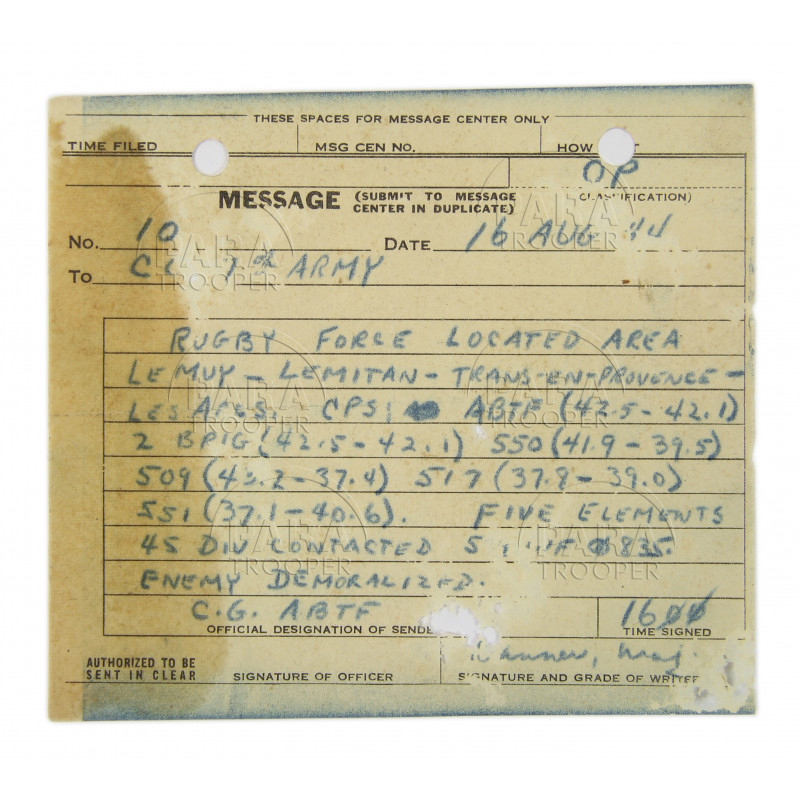 THESE SPACES FOR MESSAGE CENTER ONLY
TIME FILED MSG CEN NO. HOW
OP
MESSAGE (SUBMIT TO MESSAGE CENTER IN DUPLICATE) CLASSIFICATION)
No. 10 DATE 16 AUG 44
To C 7th ARMY
RUGBY FORCE LOCATED AREA
LE MUY - LEMITAN - TRANS-EN-PROVENCE -
LES ARCS. CPS: ABTF (42.5 - 42.1)
2 BPIG (42.5 - 42.1) 550 (41.9 - 39.5)
509 (43.2 - 37.4) 517 (37.8 - 39.0)
551 (37.1 - 40.6). FIVE ELEMENTS
45 DIV CONTACTED 835.
ENEMY DEMORALIZED.
C.G. ABTF 1600
OFFICIAL DESIGNATION OF SENDE TIME SIGNED
Maj.
AUTHORIZED TO BE
SENT IN CLEAR SIGNATURE OF OFFICER SIGNATURE AND GRADE OF WRITER
PARA TROOPER
PARA TROOPER
PARA TROOPER
PARA TROOPER
PARA TROOPER
PARA TROOPER